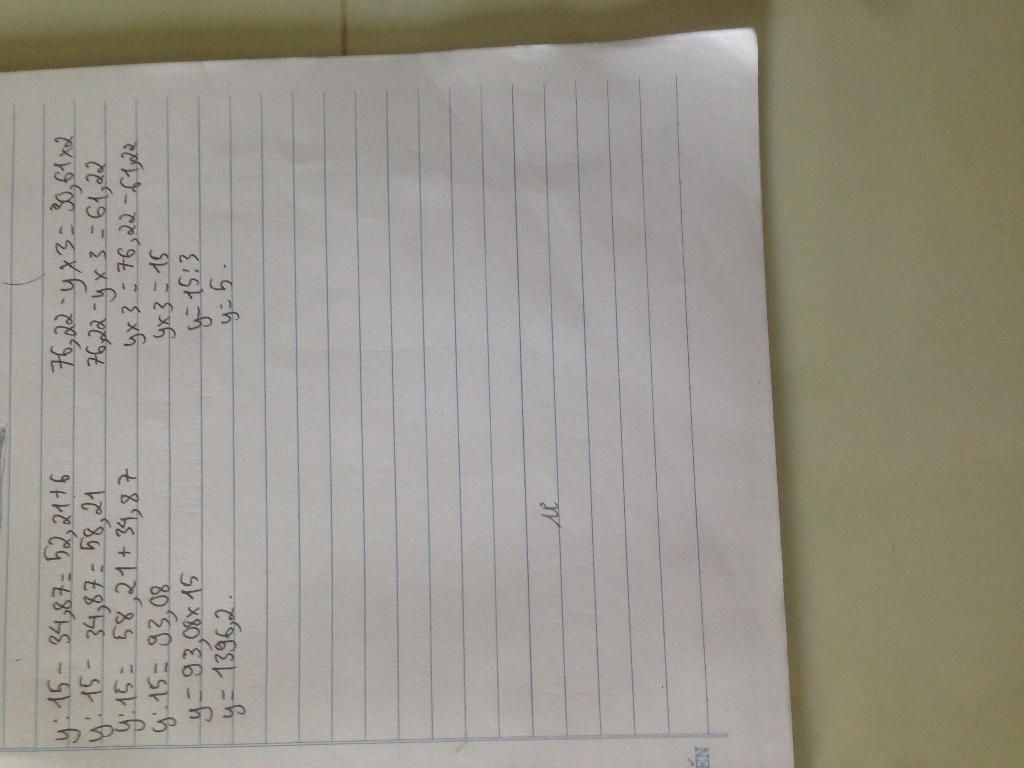 y : 15 - 34,87 = 52,21 + 6
y : 15 - 34,87 = 58,21
y : 15 = 58,21 + 34,87
y : 15 = 93,08
y = 93,08 x 15
y = 1396,2.
76,22 - y x 3 = 30,61 x 2
76,22 - y x 3 = 61,22
y x 3 = 76,22 - 61,22
y x 3 = 15
y = 15 : 3
y = 5.